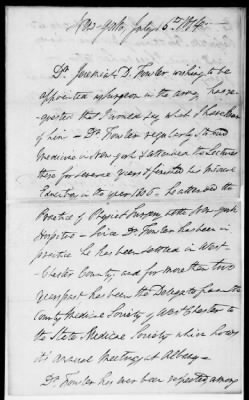 New-york, July 15th 1814
Dr. Jeremiah D. Fowler wishing to be
appointed a surgeon in the army, has re-
quested that I would say what I have known
of him - Dr. Fowler regularly studied
medicine in New-york & attended the Lectures
there for several years & finished his medical
Education in the year he attended the
Practice of Physic & Surgery at the New-york
Hospital - Since Dr. Fowler has been in
practice he has been settled in West-
Chester County, and for more than two
years past has been the Delegate from the
County Medical Society of West Chester to
the State Medical Society which holds
its annual meetings at Albany -
Dr. Fowler has ever been respected among